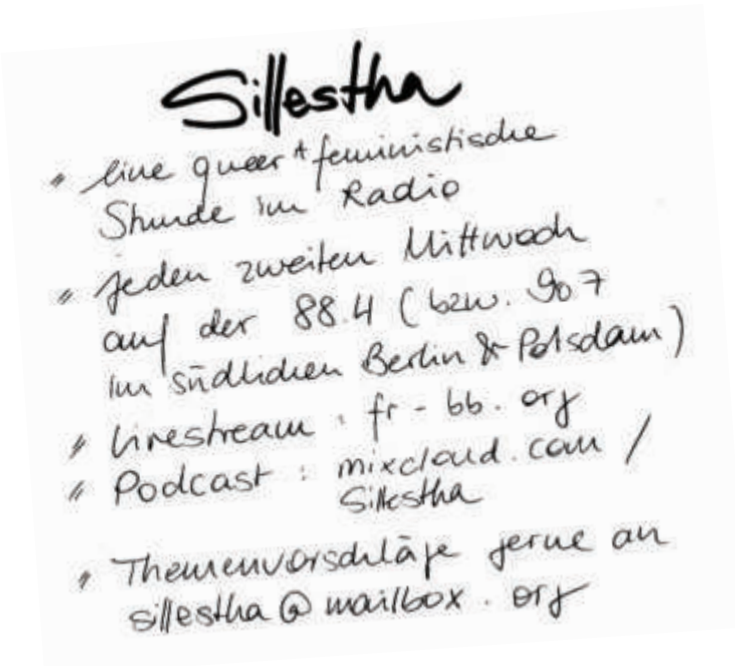 Sillestha
" eine queer*feministische
Stunde im Radio
" jeden zweiten Mittwoch
auf der 88.4 (bzw. 907
im südlichen Berlin & Potsdam)
" Livestream : fr-bb.org
" Podcast : mixcloud.com /
Sillestha
" Themenvorschläge gerne an
sillestha@mailbox.org